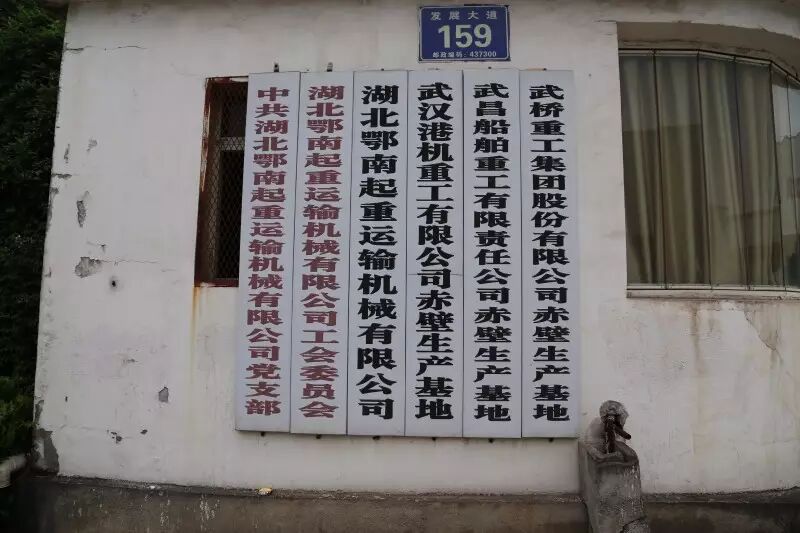 发展大道
159
邮政编码：437300
中共湖北鄂南起重运输机械有限公司党支部
湖北鄂南起重运输机械有限公司工会委员会
湖北鄂南起重运输机械有限公司
武汉港机重工有限公司赤壁生产基地
武昌船舶重工有限责任公司赤壁生产基地
武桥重工集团股份有限公司赤壁生产基地